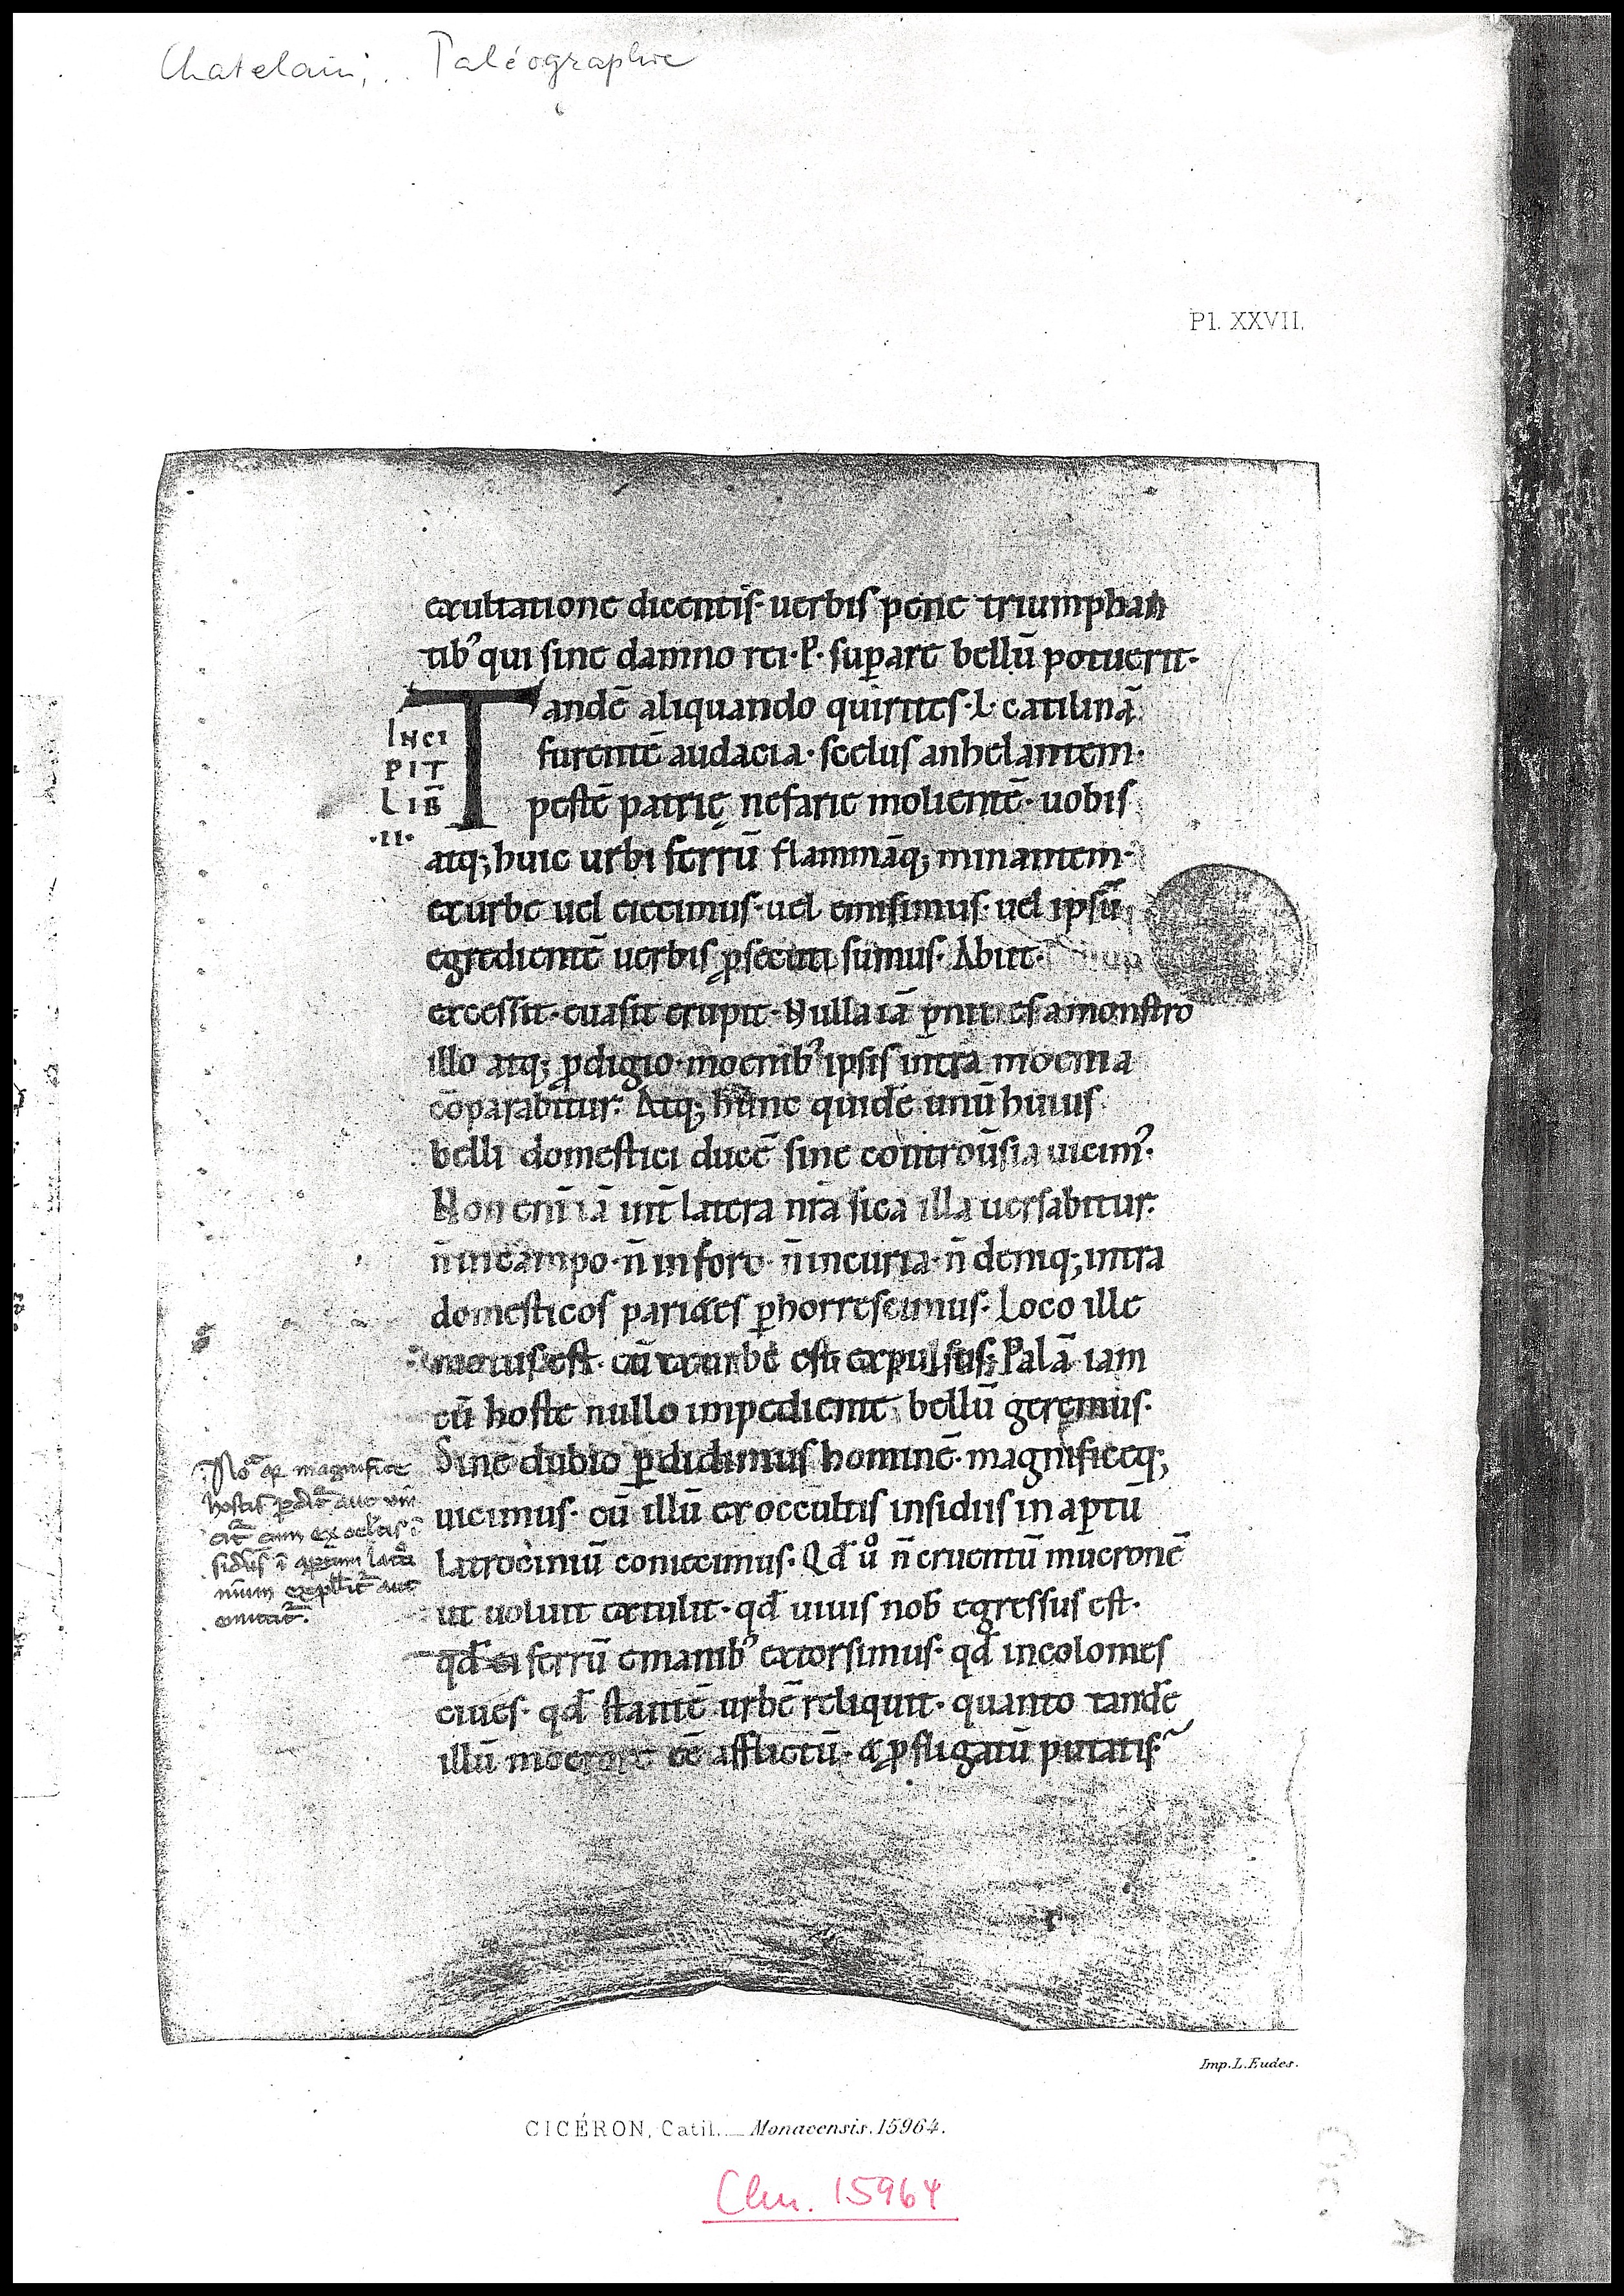 Chatelain, Paléographie
Pl. XXVII.
exultatione dicentis· uerbis pene triumphan
tibꝰ qui sine damno rei·P̣· suꝑare bellū potuerit·
INCI
PIT
LIB̄
·II·
Tandē aliquando quirites·L·catilinā
furentē audacia·scelus anhelantem·
pestē patrię nefarie molientē·uobis
atq; huic urbi ferrū flammāq; minantem·
exurbe uel eiecimus·uel emisimus·uel ipsū
egredientē uerbis ꝓsecuti sumus· Abiit·
excessit·euasit erupit·Nulla iā ꝑnities amonstro
illo atq; ꝓdigio·moenibꝰ ipsis intra moenia
cōparabitur· Atq; hunc quidē unū huius
belli domestici ducē sine controūsia uicimꝰ·
Non enī iā int̄ latera nr̄a sica illa uersabitur·
n̄ incampo·n̄ in foro·n̄ incuria·n̄ deniq; intra
domesticos parietes ꝑhorrescimus· Loco ille
motus est· cū exurbe est expulsus; Palā iam
cū hoste nullo impediente bellū geremus·
Sine dubio ꝑdidimus hominē·magnificeq;
uicimus· cū illū ex occultis insidiis in aꝑtū
Latrociniū coniecimus· Qđ uͦ n̄ cruentū mucronē
ut uoluit extulit·qđ uiuis nob egressus est·
qđ ei ferrū emanibꝰ extorsimus·qđ incolomes
ciues· qđ stantē urbē reliquit· quanto tandē
illū moerore eē afflictū·& ꝓfligatū putatis·
magnifice
hostis
Imp. L. Eudes.
CICÉRON, Catil. _ Monacensis. 15964.
Clm. 15964